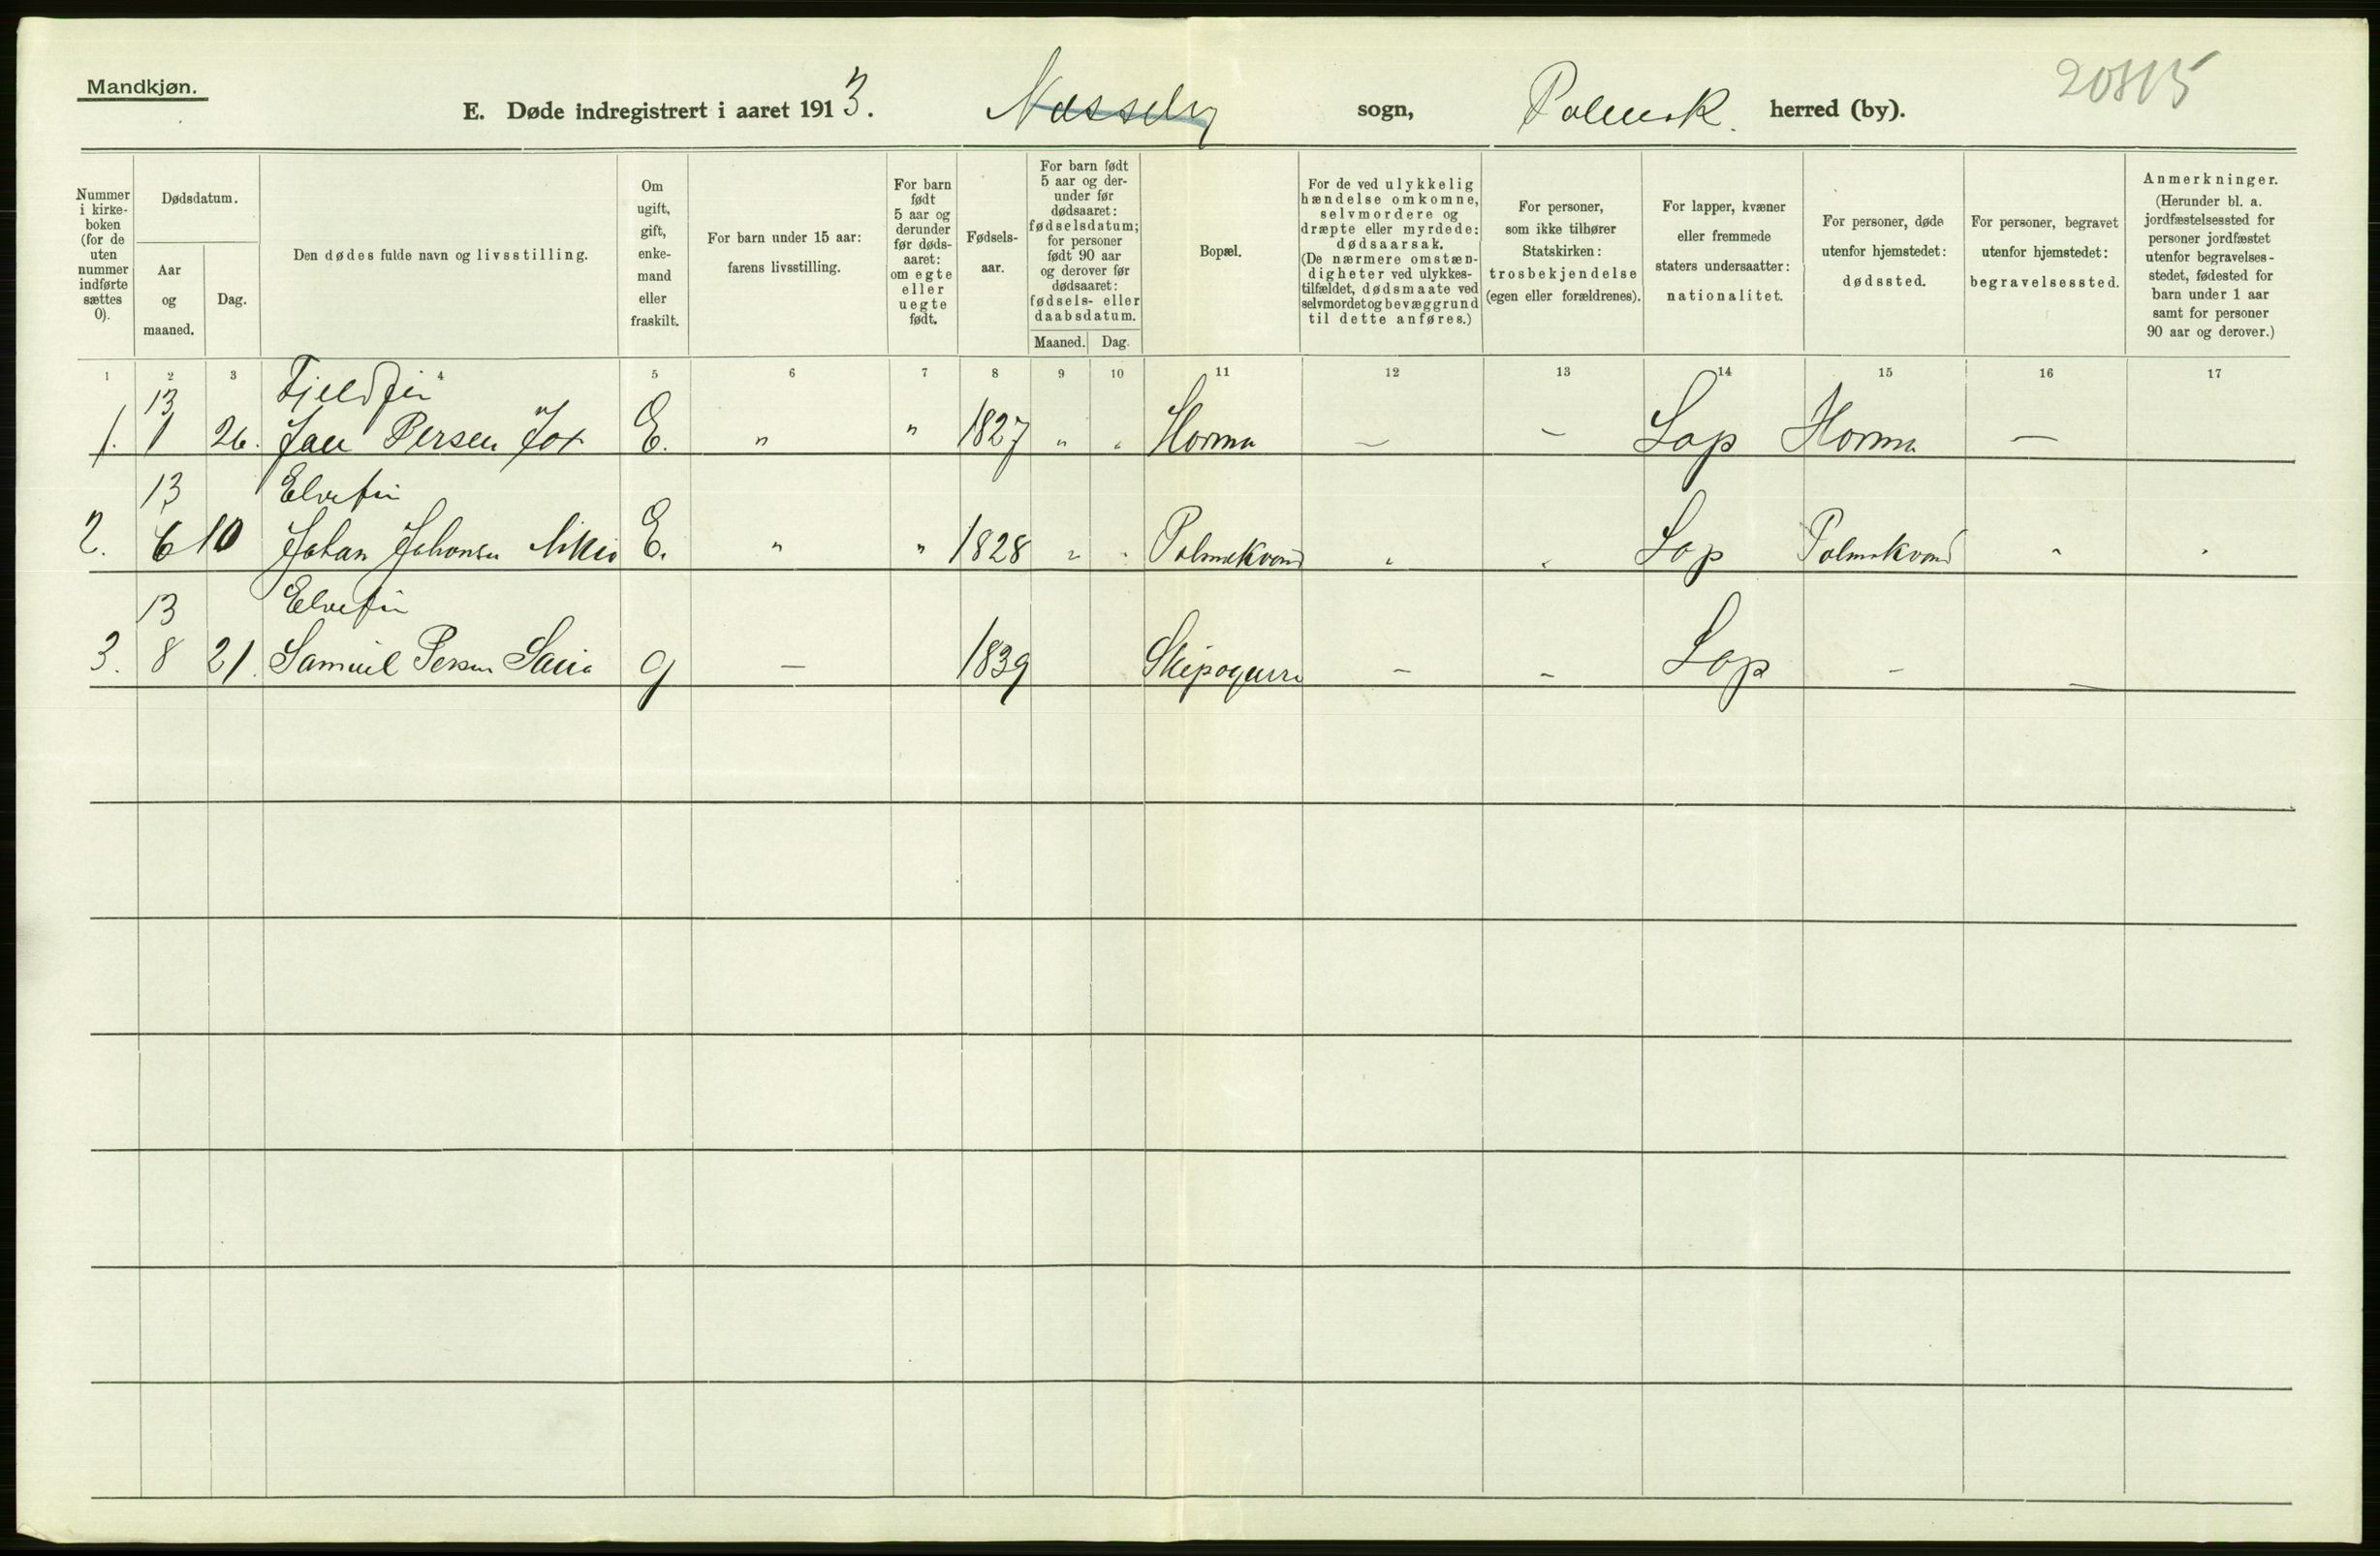 Mandkjøn.
E. Døde indregistrert i aaret 1913. Næsseby sogn, Polmak herred (by). 20815
Nummer i kirke-boken (for de uten nummer indførte sættes 0).
Dødsdatum.
Aar og maaned.
Dag.
Den dødes fulde navn og livsstilling.
Om ugift, gift, enke-mand eller fraskilt.
For barn under 15 aar: farens livsstilling.
For barn født 5 aar og derunder før døds-aaret: om egte eller uegte født.
Fødsels-aar.
For barn født 5 aar og der-under før dødsaaret: fødselsdatum; for personer født 90 aar og derover før dødsaaret: fødsels- eller daabsdatum.
Maaned. Dag.
Bopæl.
For de ved ulykkelig hændelse omkomne, selvmordere og dræpte eller myrdede: dødsaarsak. (De nærmere omstæn-digheter ved ulykkes-tilfældet, dødsmaate ved selvmordet og bevæggrund til dette anføres.)
For personer, som ikke tilhører Statskirken: trosbekjendelse (egen eller forældrenes).
For lapper, kvæner eller fremmede staters undersaatter: nationalitet.
For personer, døde utenfor hjemstedet: dødssted.
For personer, begravet utenfor hjemstedet: begravelsessted.
Anmerkninger. (Herunder bl. a. jordfæstelsessted for personer jordfæstet utenfor begravelses-stedet, fødested for barn under 1 aar samt for personer 90 aar og derover.)
1 2 3 4 5 6 7 8 9 10 11 12 13 14 15 16 17
13 Fjeldfin
1. 1 26. Persen E. " " 1827 " " Horma — — Lap Horma —
13 Elvefin
2. 6 10 Johan Johansen E. " " 1828 " " Polmakvand " " Lap Polmakvand " "
13 Elvefin
3. 8 21. Samuel Persen g — 1839 — — Lap — —